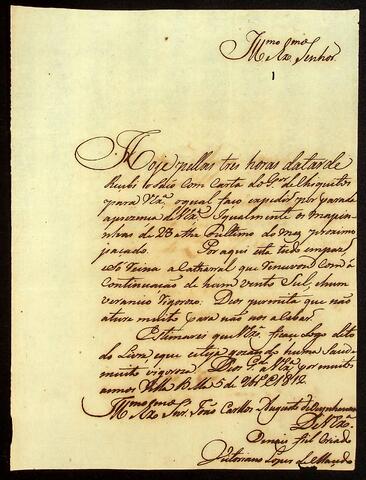 Illmo. Exmo. Senhor
Hoje pellas tres horas da tarde
Recebi o Maço com Carta do Gor. de Chiquitos
para VExa. o qual faço expedir por parada
a prezença de VExa. Igualmente os
de 23 athe o ultimo do mez proximo
paçado. Por aqui está tudo em paz,
só Reina a Catharral que Renovou com a
continuação de hum vento Sul, e hum
veranico Vigorozo. Deos permita que não
ature muito para não nos acabar.
Estimarei que VExa. fique Logo
do Livra, e que esteja gozando huma Saude
muito vigoroza. Deos Ge. a VExa. por muitos
annos Villa Bella 5 de de 1812
Illmo. Exmo. Snr. João Carllos Augusto de Oeynhausen
De VExa.
Demais fiel Criado
Victoriano Lopes de Macedo